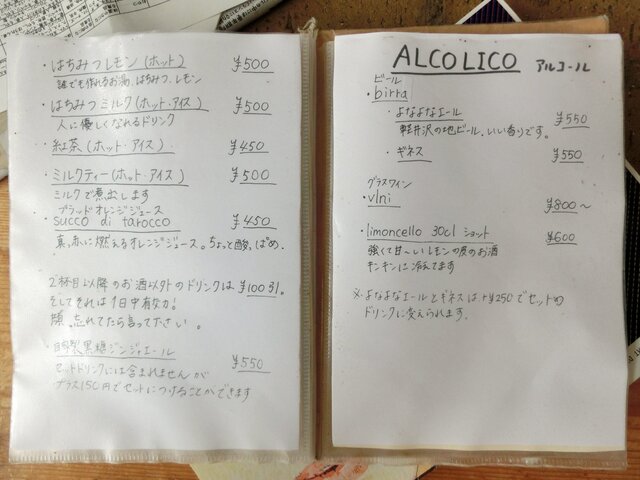 ・はちみつレモン(ホット) ¥500
誰でも作れるお湯、はちみつ、レモン
・はちみつミルク(ホット・アイス) ¥500
人に優しくなれるドリンク
・紅茶(ホット・アイス) ¥450
・ミルクティー(ホット・アイス) ¥500
ミルクで煮出します
ブラッドオレンジジュース
・succo di tarocco ¥450
真っ赤に燃えるオレンジジュース。ちょっと酸っぱめ.
2杯目以降のお酒以外のドリンクは¥100引。
そしてそれは1日中有効!
顔。忘れてたら言って下さい。
・自製黒糖ジンジャエール ¥550
セットドリンクには含まれませんが
プラス150円でセットにつけることができます
ALCOLICO アルコール
ビール
・birra
・よなよなエール ¥550
軽井沢の地ビール。いい香りです。
・ギネス ¥550
グラスワイン
・vini ¥800〜
・limoncello 30cl ショット ¥600
強くて甘〜いレモンの皮のお酒
キンキンに冷えてます
※よなよなエールとギネスは+¥250でセットの
ドリンクに変えられます.